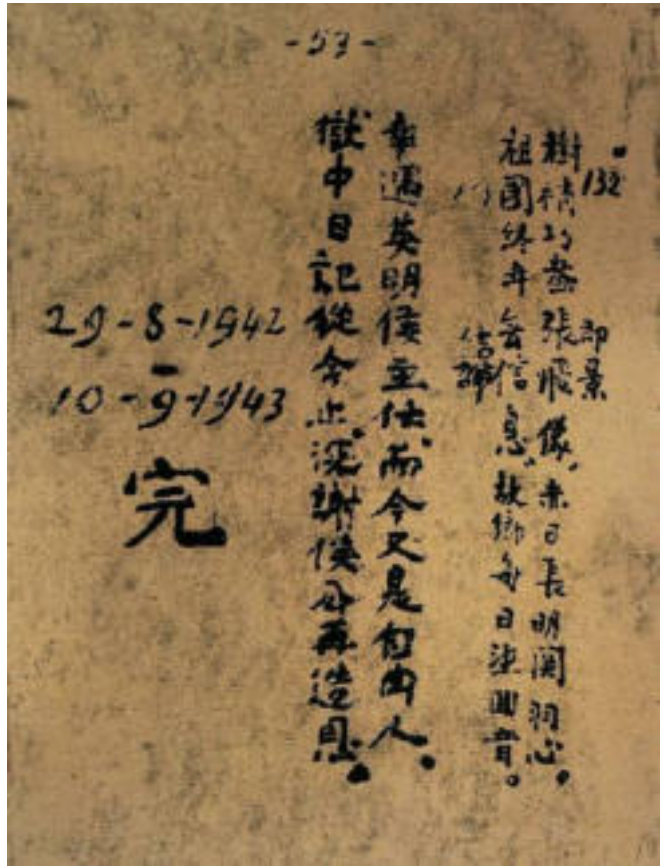 -53-
132
即景
樹梢巧畫張飛像，赤日長明關羽心。
祖國終年無信息，故鄉每日望回音。
幸遇英明侯主任，而今又是自由人。
獄中日記從今止，深謝侯公再造恩。
29-8-1942
-
10-9-1943
完